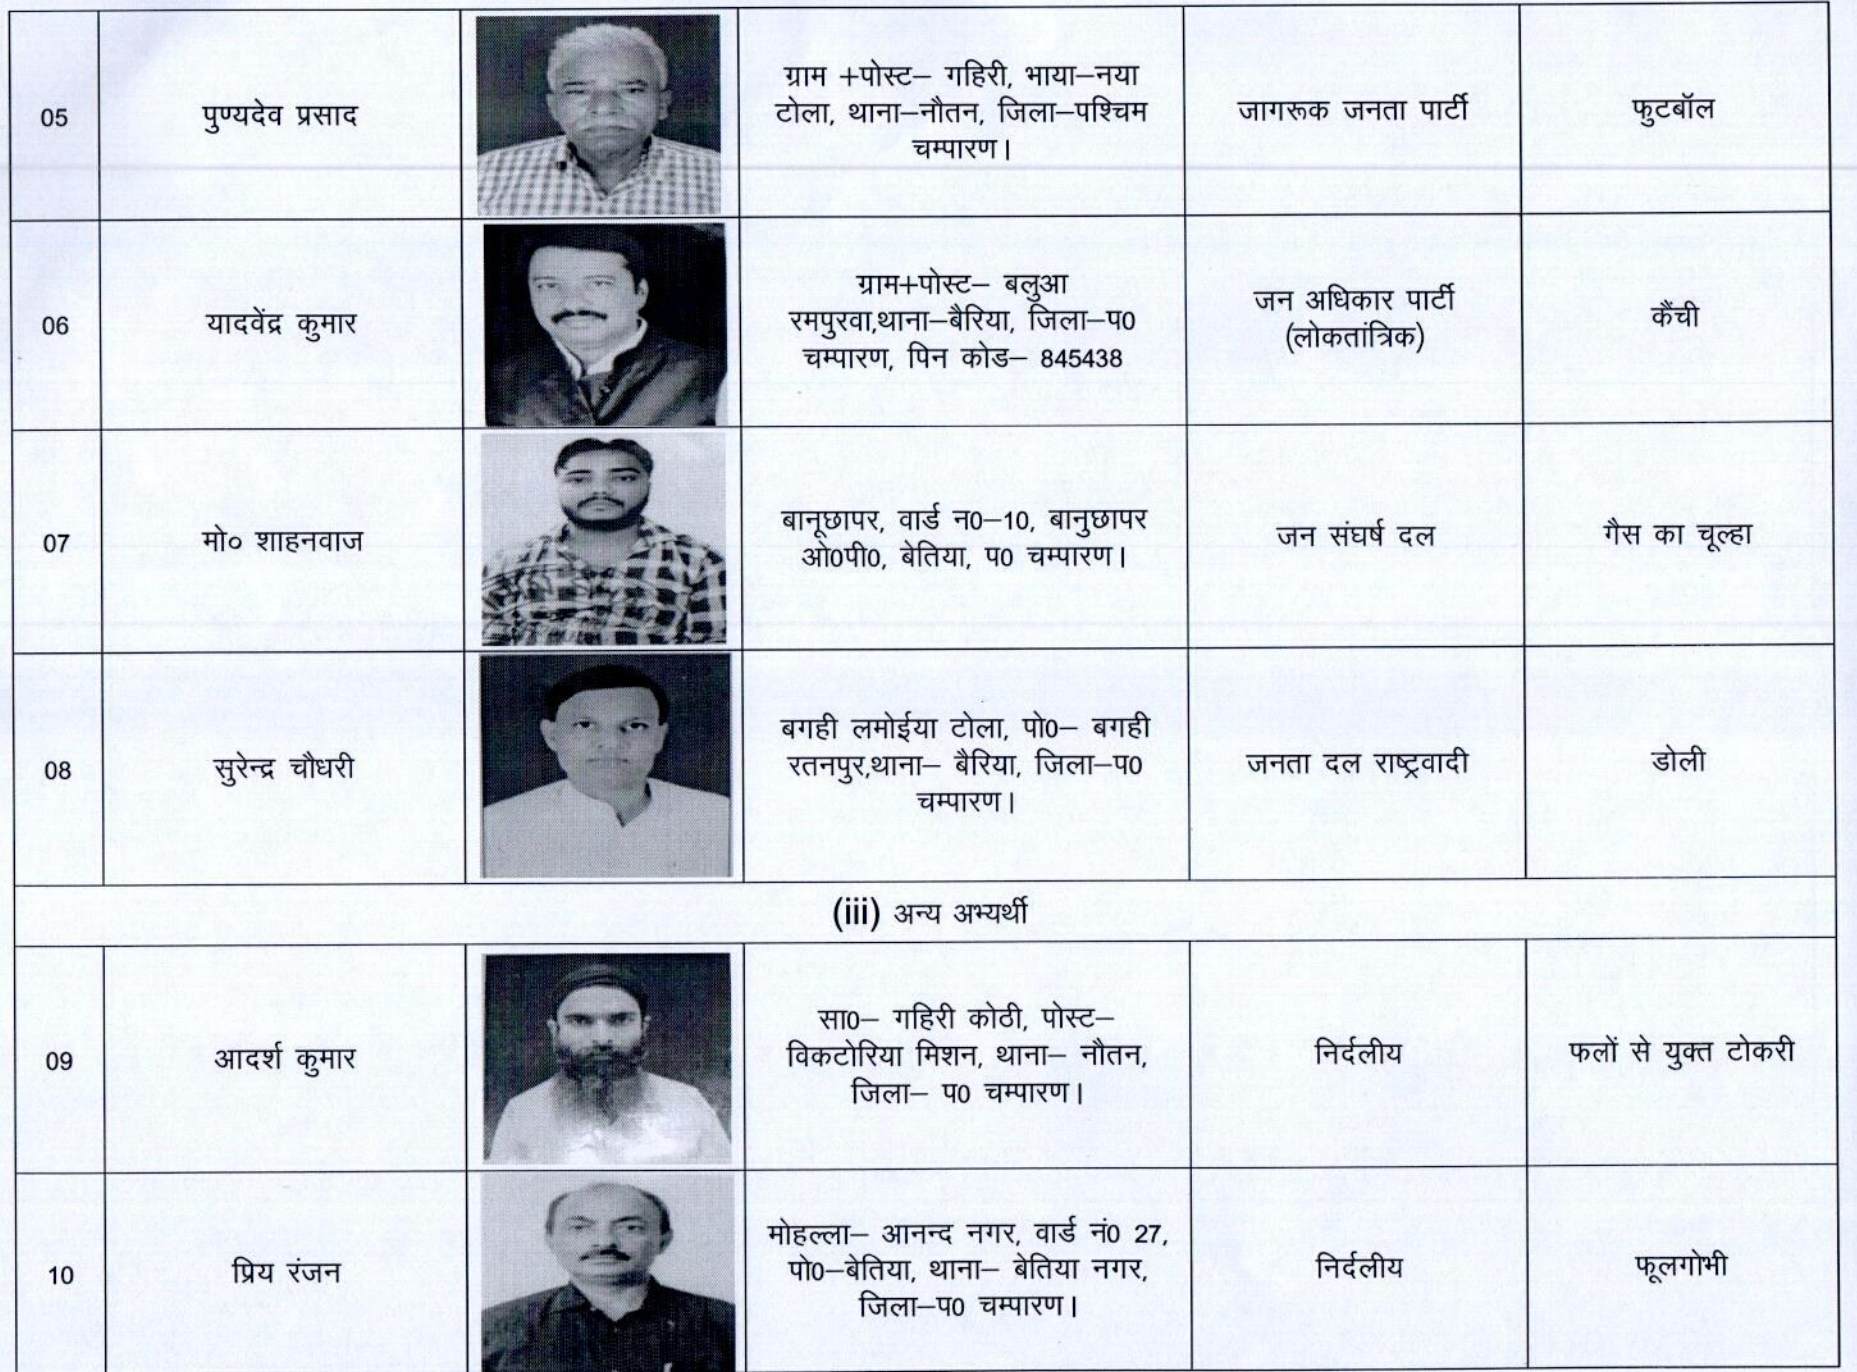 05
पुण्यदेव प्रसाद
ग्राम +पोस्ट– गहिरी, भाया–नया
टोला, थाना–नौतन, जिला–पश्चिम
चम्पारण।
जागरूक जनता पार्टी
फुटबॉल
06
यादवेंद्र कुमार
ग्राम+पोस्ट– बलुआ
रमपुरवा,थाना–बैरिया, जिला–प0
चम्पारण, पिन कोड– 845438
जन अधिकार पार्टी
(लोकतांत्रिक)
कैंची
07
मो० शाहनवाज
बानूछापर, वार्ड न0–10, बानुछापर
ओ0पी0, बेतिया, प0 चम्पारण।
जन संघर्ष दल
गैस का चूल्हा
08
सुरेन्द्र चौधरी
बगही लमोईया टोला, पो0– बगही
रतनपुर,थाना– बैरिया, जिला–प0
चम्पारण।
जनता दल राष्ट्रवादी
डोली
(iii) अन्य अभ्यर्थी
09
आदर्श कुमार
सा0– गहिरी कोठी, पोस्ट–
विकटोरिया मिशन, थाना– नौतन,
जिला– प0 चम्पारण।
निर्दलीय
फलों से युक्त टोकरी
10
प्रिय रंजन
मोहल्ला– आनन्द नगर, वार्ड नं0 27,
पो0–बेतिया, थाना– बेतिया नगर,
जिला–प0 चम्पारण।
निर्दलीय
फूलगोभी